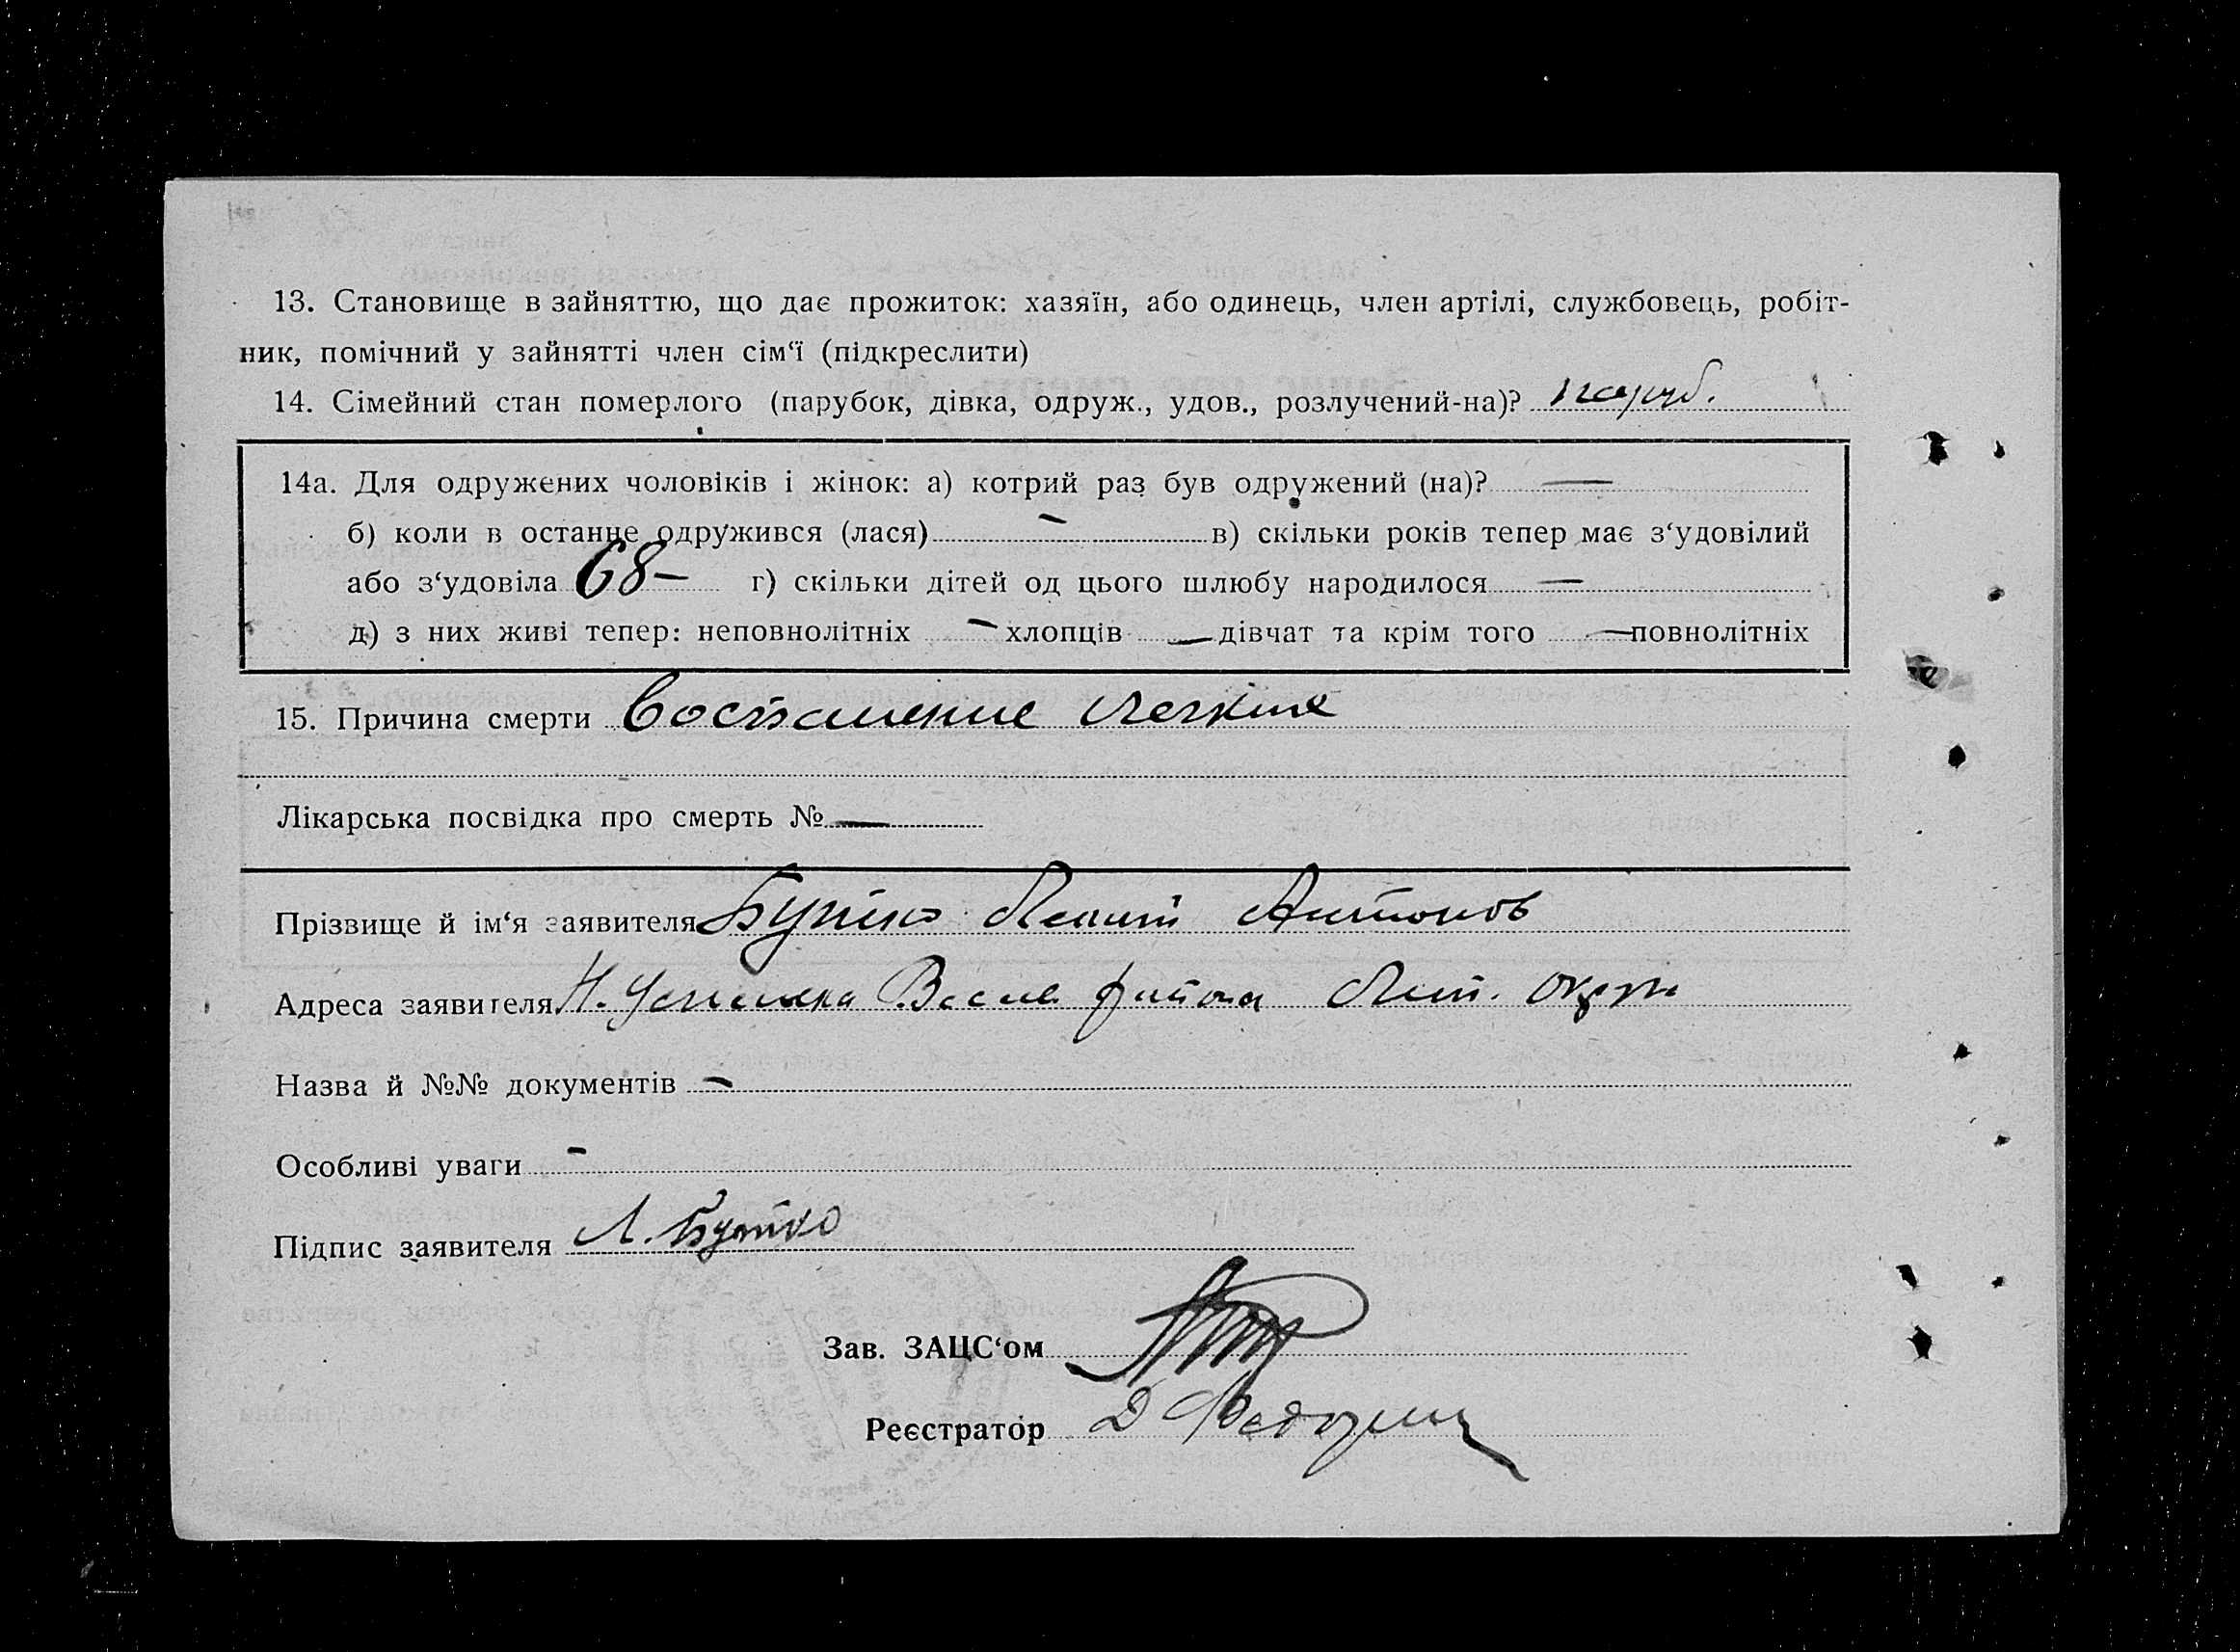 13. Становище в зайняттю, що дає прожиток: хазяїн, або одинець, член артілі, службовець, робіт-
ник, помічний у зайнятті член сім‘ї (підкреслити)
14. Сімейний стан померлого (парубок, дівка, одруж., удов., розлучений-на)? паруб.
14а. Для одружених чоловіків і жінок: а) котрий раз був одружений (на)? —
б) коли в останнє одружився (лася) — в) скільки років тепер має з‘удовілий
або з‘удовіла 68 — г) скільки дітей од цього шлюбу народилося —
д) з них живі тепер: неповнолітніх — хлопців — дівчат та крім того — повнолітніх
15. Причина смерти Воспаление легких
Лікарська посвідка про смерть № —
Прізвище й ім‘я заявителя Бутко Антонов
Адреса заявителя района округи
Назва й №№ документів —
Особливі уваги —
Підпис заявителя Л. Бутко
Зав. ЗАЦС‘ом
Реєстратор Д